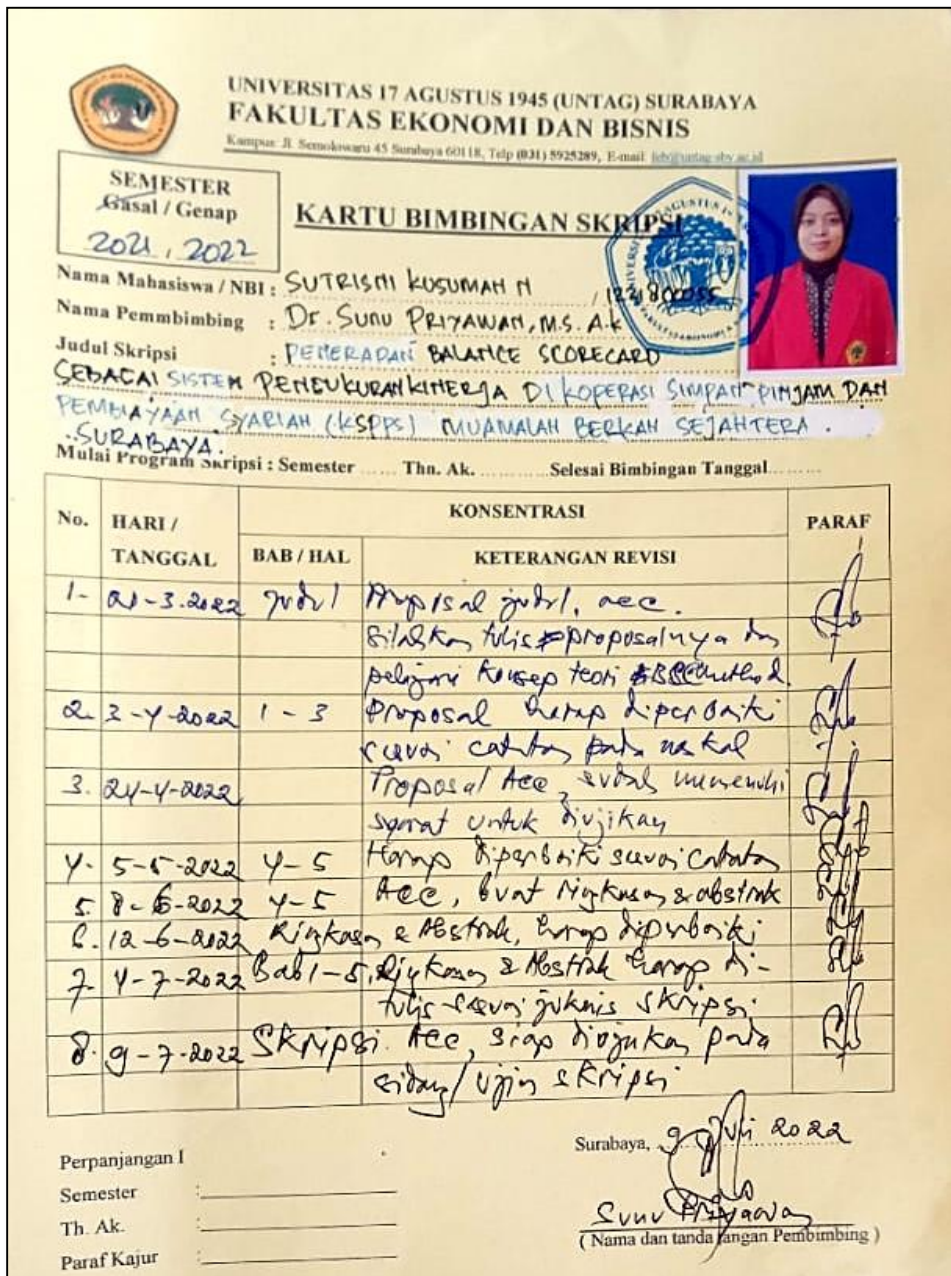 UNIVERSITAS 17 AGUSTUS 1945 (UNTAG) SURABAYA
FAKULTAS EKONOMI DAN BISNIS
Kampus: Jl. Semolowaru 45 Surabaya 60118, Telp (031) 5925289, E-mail: feb@untag-sby.ac.id
SEMESTER
Gasal / Genap
2021, 2022
KARTU BIMBINGAN SKRIPSI
Nama Mahasiswa / NBI : SUTRISNI KUSUMAH N / 1221800055
Nama Pemmbimbing : Dr. SUNU PRIYAWAN, M.S. A.k
Judul Skripsi : PENERAPAN BALANCE SCORECARD
SEBAGAI SISTEM PENGUKURAN KINERJA DI KOPERASI SIMPAN PINJAM DAN
PEMBIAYAAN SYARIAH (KSPPS) MUAMALAH BERKAH SEJAHTERA .
SURABAYA.
Mulai Program Skripsi : Semester ...... Thn. Ak. ...... Selesai Bimbingan Tanggal.........
No. HARI / TANGGAL KONSENTRASI PARAF
BAB / HAL KETERANGAN REVISI
1- 01-3-2022 Judul judul, acc.
Silahkan tulis proposalnya dan
pelajari konsep teori
2. 3-4-2022 1 - 3 Proposal harap diperbaiki
sesuai catatan pada naskah
3. 24-4-2022 Proposal Acc, sudah memenuhi
syarat untuk diujikan
4. 5-5-2022 4-5 Harap diperbaiki sesuai catatan
5. 8-6-2022 4-5 Acc, buat ringkasan & abstrak
6. 12-6-2022 Ringkasan & Abstrak, harap diperbaiki
7. 4-7-2022 Bab 1-5, Ringkasan & Abstrak harap di-
tulis sesuai juknis skripsi
8. 9-7-2022 Skripsi Acc, siap diajukan pada
sidang / ujian skripsi
Surabaya, 9 Juli 2022
Sunu Priyawan
( Nama dan tanda tangan Pembimbing )
Perpanjangan I
Semester :
Th. Ak. :
Paraf Kajur :